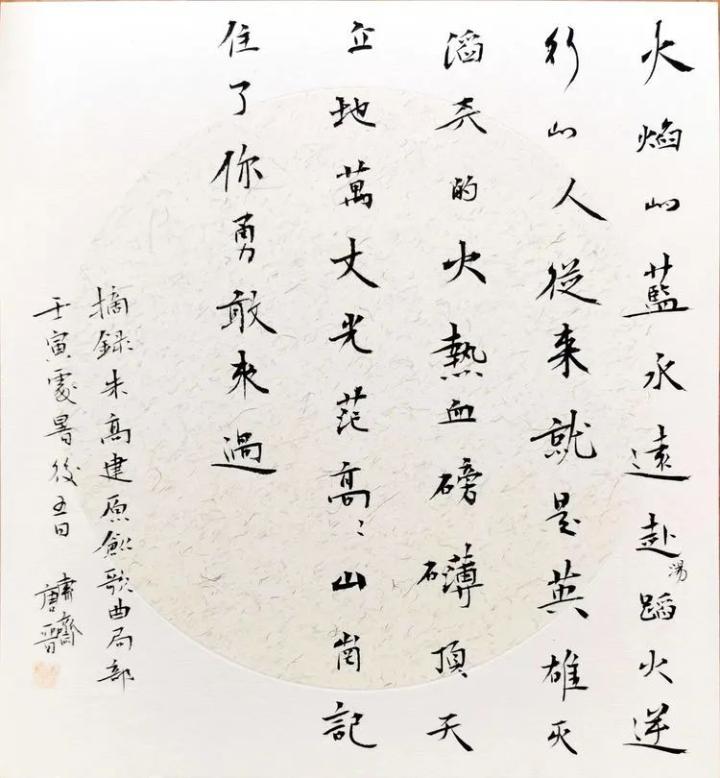 火焰的藍永遠赴湯蹈火逆
行的人從來就是英雄灭
滔天的火熱血磅礴頂天
立地萬丈光芒高〻山崗記
住了你勇敢來過
摘録朱高建原創歌曲局部
壬寅處暑後五日 肅齋唐晉